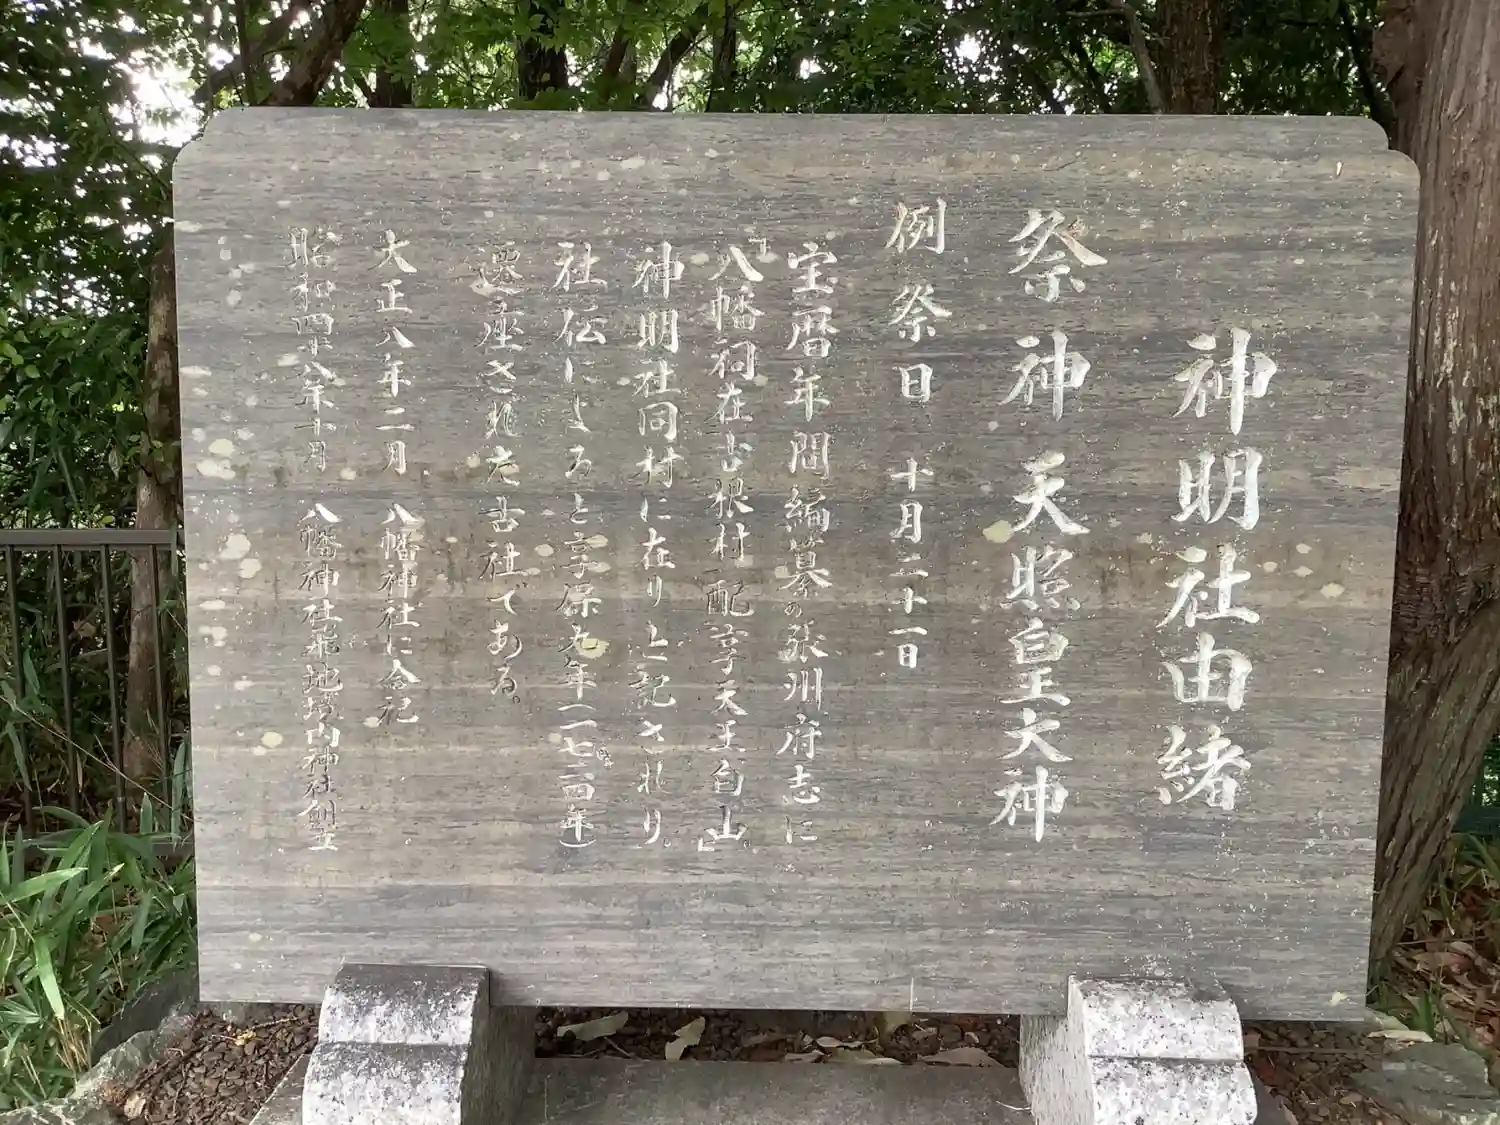 神明社由緒
祭神 天照皇大神
例祭日 十月二十一日
宝暦年間編纂の張州府志に
「八幡祠在古根村配享天王白山」
神明社同村に在り」と記されり。
社伝によると享保九年(一七二四年)
遷座された古社である。
大正八年二月 八幡神社に合祀
昭和四十八年十月 八幡神社飛地境内神社創立